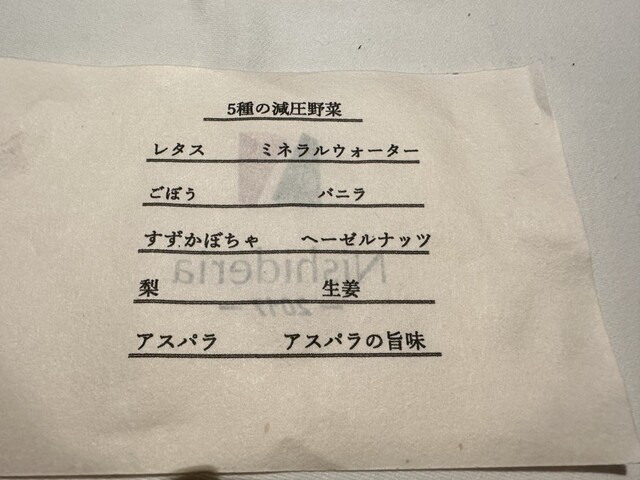 5種の減圧野菜
レタス ミネラルウォーター
ごぼう バニラ
すずかぼちゃ ヘーゼルナッツ
梨 生姜
アスパラ アスパラの旨味
Nishideria
2017